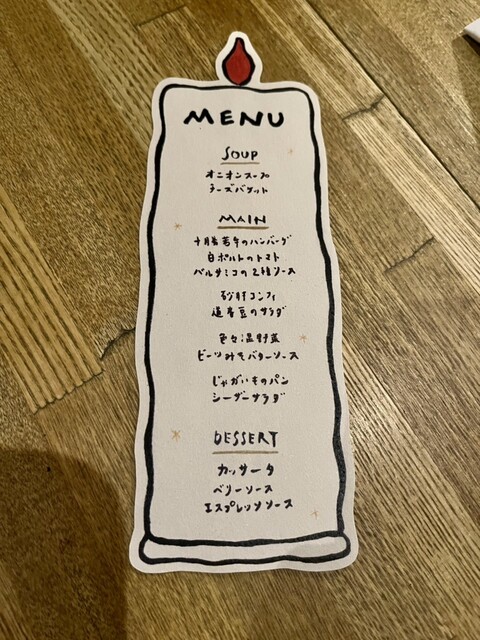 MENU
SOUP
オニオンスープ
チーズバゲット
MAIN
十勝若牛のハンバーグ
白ポルトのトマト
バルサミコの2種ソース
砂肝コンフィ
道産豆のサラダ
色々温野菜
ビーツみそバターソース
じゃがいものパン
シーザーサラダ
DESSERT
カッサータ
ベリーソース
エスプレッソソース